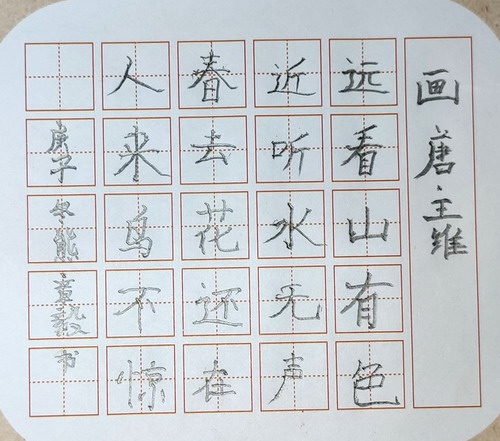 画 唐·王维
远看山有色
近听水无声
春去花还在
人来鸟不惊
庚子冬熊章毅书